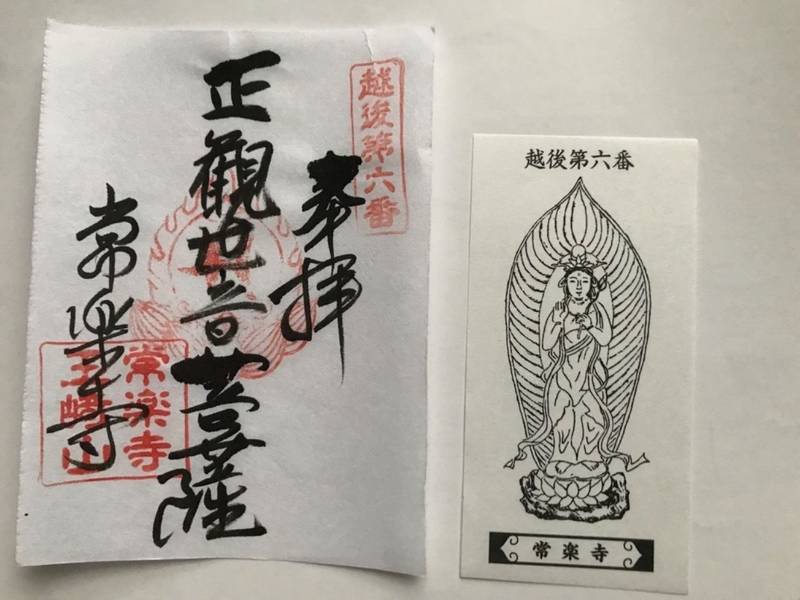 越後第六番
奉拝
正觀世音菩薩
常楽寺
常楽寺
越後第六番
常楽寺